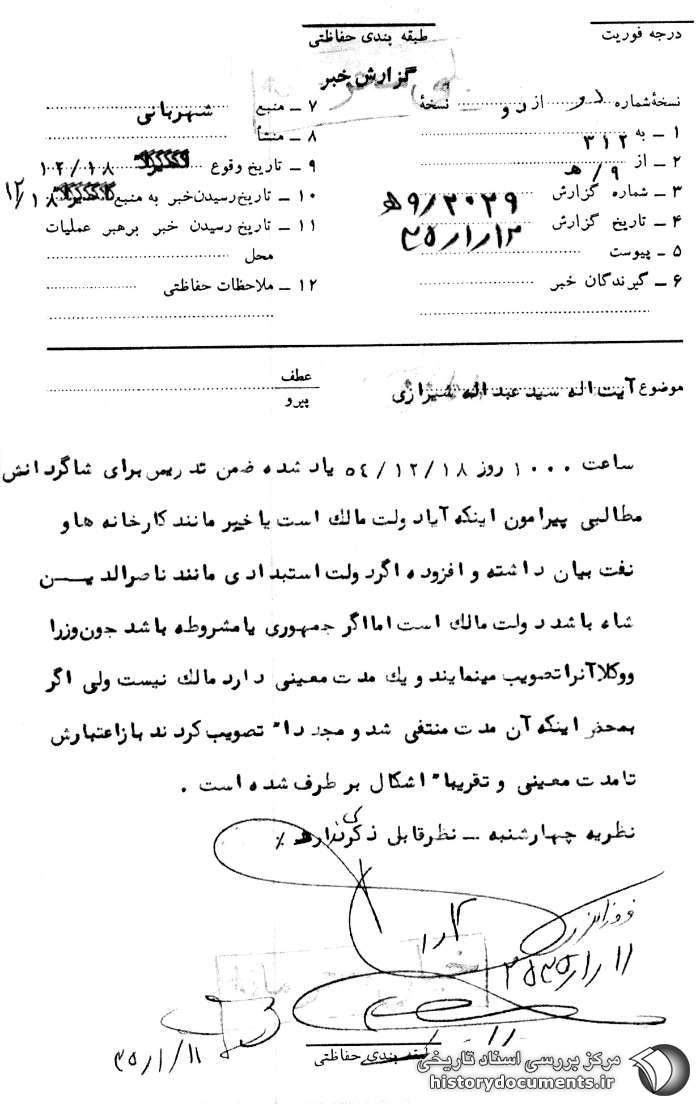 درجه فوریت
طبقه بندی حفاظتی
گزارش خبر
نسخهٔ شماره دو از دو نسخهٔ
۱ ــ به ۳۱۲
۲ ــ از ۹/ﻫ
۳ ــ شماره گزارش ۹/۲۰۲۹ﻫ
۴ ــ تاریخ گزارش ۳۵/۱/۱۲
۵ ــ پیوست
۶ ــ گیرندگان خبر
۷ ــ منبع شهربانی
۸ ــ منشأ
۹ ــ تاریخ وقوع ۱۲/۱۸
۱۰ ــ تاریخ رسیدن خبر به منبع ۱۲/۱۸
۱۱ ــ تاریخ رسیدن خبر برهبر عملیات
محل
۱۲ ــ ملاحظات حفاظتی
موضوع آیت اله سید عبد اله شیرازی
عطف
پیرو
ساعت ۱۰۰۰ روز ۵٤/۱۲/۱۸ یاد شده ضمن تدریس برای شاگردانش
مطالبی پیرامون اینکه آیا دولت مالك است یا خیر مانند کارخانه ها و
نفت بیان داشته و افزوده اگر دولت استبدادی مانند ناصرالدیـــن
شاه باشد دولت مالك است اما اگر جمهوری یا مشروطه باشد چون وزرا
و وکلا آنرا تصویب مینمایند و یك مدت معینی دارد مالك نیست ولی اگر
بمحض اینکه آن مدت منتفی شد و مجددا" تصویب کردند باز اعتبارش
تا مدت معینی و تقریبا" اشکال بر طرف شده است .
نظریه چهارشنبه ــ نظر قابل ذکری ندارد ٪
۱۱/۱/۲۵۳۵
۳۵/۱/۱۱
طبقه بندی حفاظتی
مرکز بررسی اسناد تاریخی
historydocuments.ir